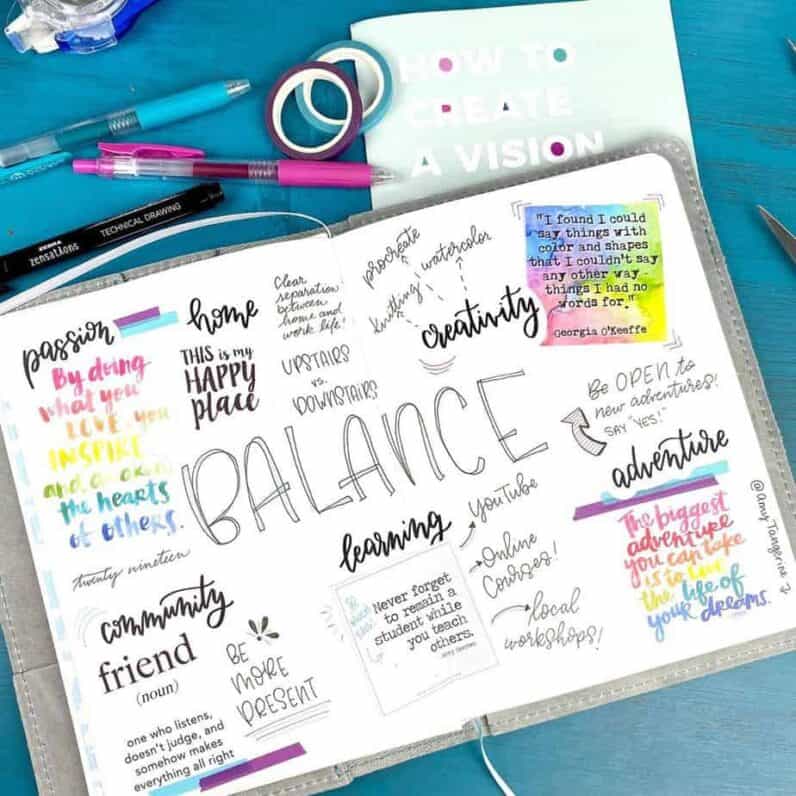 HOW TO
CREATE
A VISION
TECHNICAL DRAWING
ZEBRA
zensations
passion
By doing
what you
LOVE, you
INSPIRE
and awaken
the hearts
of others.
twenty nineteen
home
THIS is my
HAPPY
place
Clear
separation
between
home and
work life!
UPSTAIRS
vs.
DOWNSTAIRS
procreate
knitting
watercolor
creativity
"I found I could
say things with
color and shapes
that I couldn't say
any other way -
things I had no
words for."
Georgia O'Keeffe
BALANCE
Be OPEN to
new adventures!
SAY "YES!"
adventure
The biggest
adventure
you can take
is to live
the life of
your dreams.
@AmyTangerine
learning
Never forget
to remain a
student while
you teach
others.
YouTube
Online
Courses!
local
workshops!
community
friend
(noun)
one who listens,
doesn't judge, and
somehow makes
everything all right
BE
MORE
PRESENT